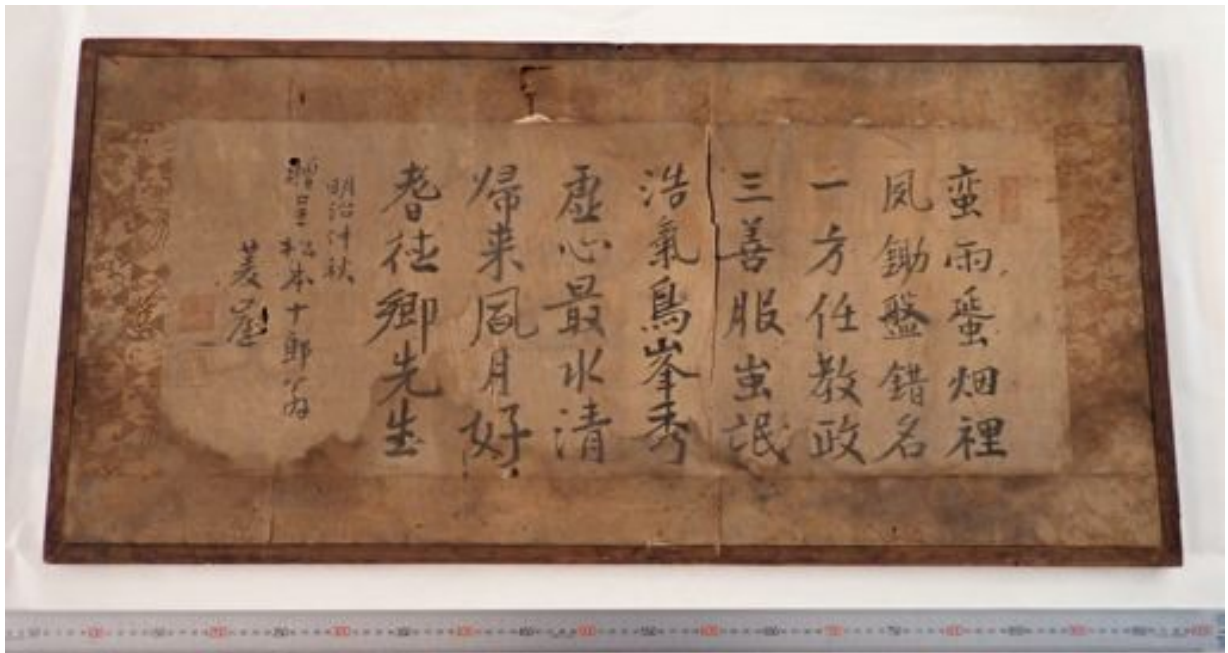 蛮雨蜑烟裡
夙鋤盤錯名
一方任教政
三善服蚩氓
浩氣鳥峯秀
虚心最水清
帰来風月好
耆徳郷先生
明治廿秋
贈呈松本十郎翁